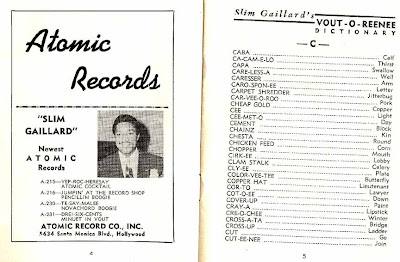 Atomic
Records
"SLIM
GAILLARD"
Newest
ATOMIC
Records
A-215—YEP-ROC-HERESAY
ATOMIC COCKTAIL
A-216—JUMPIN' AT THE RECORD SHOP
PENCILLIN BOOGIE
A-230—TE-SAY-MALEE
NOVACHORD BOOGIE
A-231—DREI-SIX-CENTS
MINUET IN VOUT
ATOMIC RECORD CO., INC.
5634 Santa Monica Blvd., Hollywood
4
Slim Gaillard's
VOUT-O-REENEE
DICTIONARY
— C —
CABA Calf
CA-CAM-E-LO Thirst
CAPA Swallow
CARE-LESS-A Wolf
CARESSER Arm
CARO-SPON-EE Letter
CARPET SHREDDER Jitterbug
CAR-VEE-O-ROO Pork
CHEAP GOLD Copper
CEE Light
CEE-MET-O Day
CEMENT Block
CHAINZ Kin
CHESTA Round
CHICKEN FEED Corn
CHOPPER Mouth
CIRK-EE Lobby
CLAM STALK Celery
CLY-EE Plate
COLOR-VEE-TEE Butterfly
COPPER HAT Lieutenant
COR-TO Lawyer
COT-O-EE Down
COVER-UP Paint
CRAY-A Lipstick
CRE-O-CHEE Winter
CROSS-A-TA Bridge
CUT Ladder
Go
CUT-EE-NEE Join
5